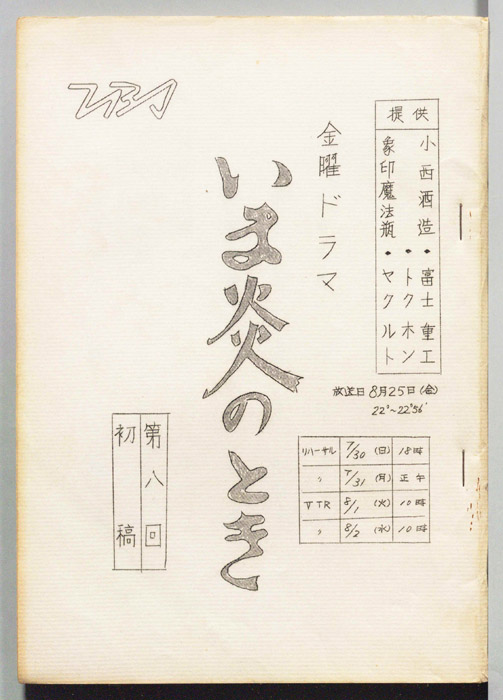 TBS
提供
小西酒造・富士重工
・トクホン
象印魔法瓶・ヤクルト
金曜ドラマ
いま炎のとき
放送日 8月25日(金)
22°~22°56'
リハーサル 7/30 (日) 18時
〃 7/31 (月) 正午
VTR 8/1 (火) 10時
〃 8/2 (水) 10時
第八回
初稿